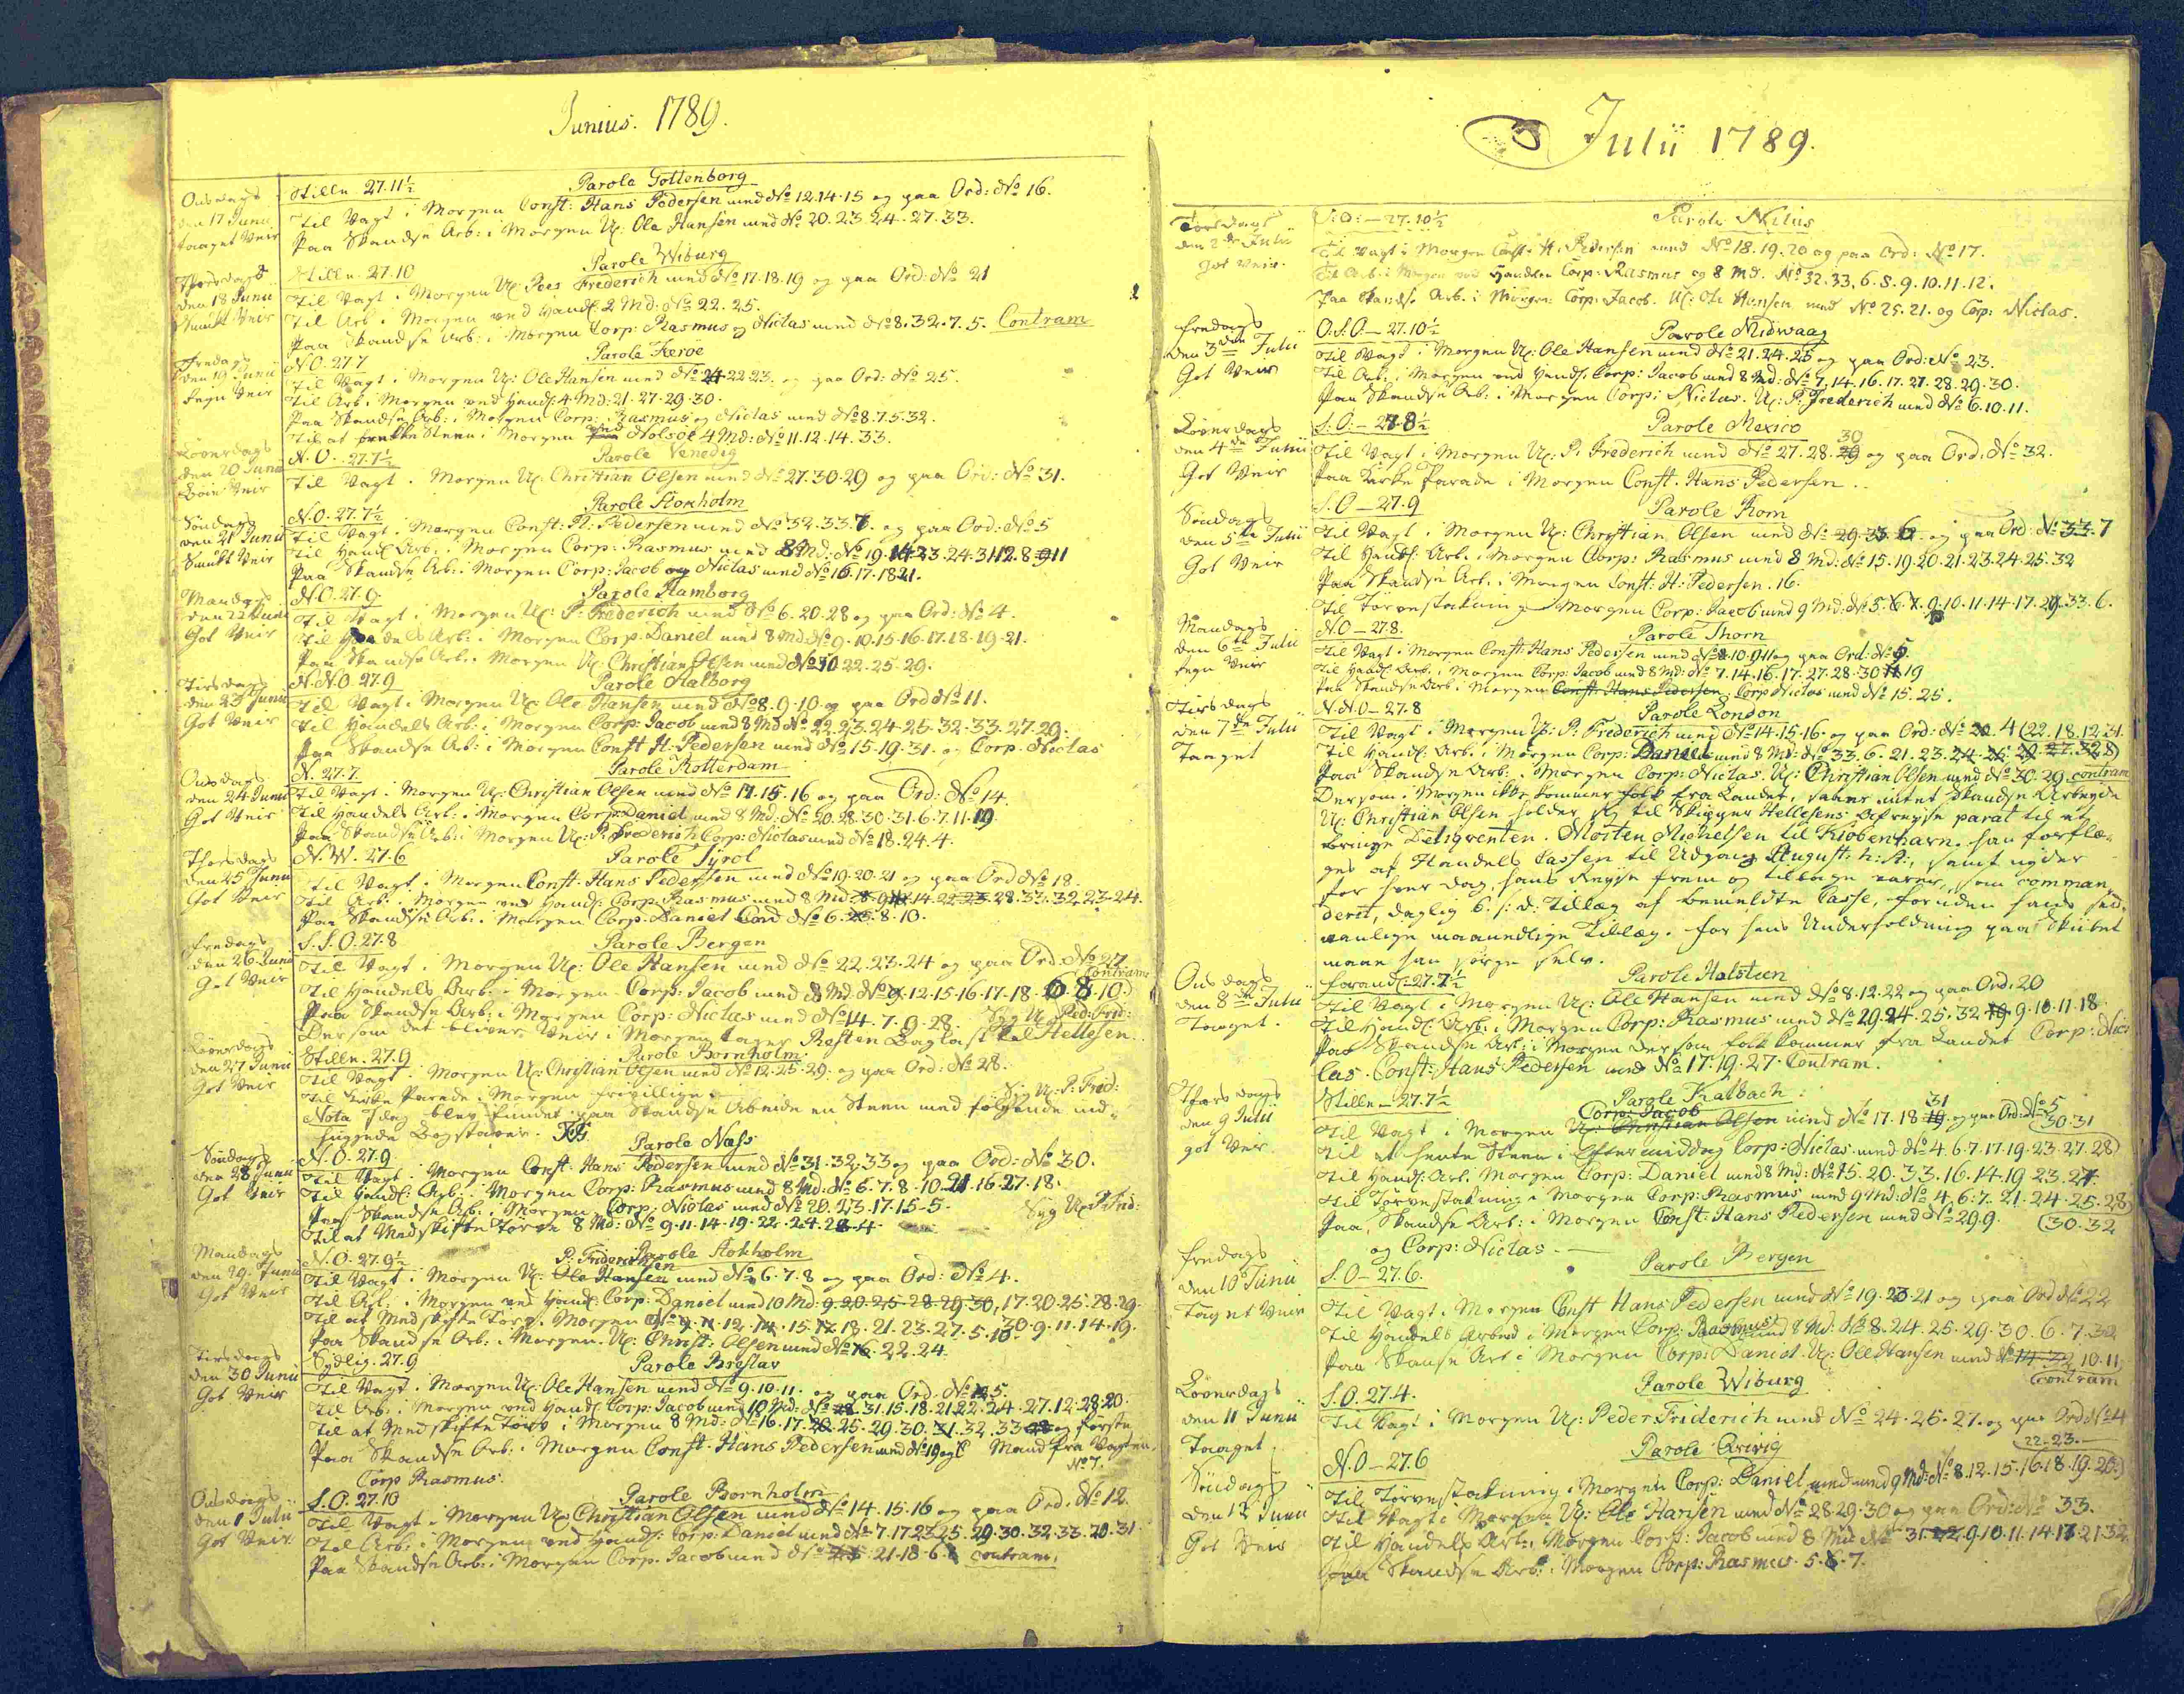 Junius. 1789.
Onsdags
den 17 Junii
taaget Veir
Stille 27.11½
Parole Gottenborg
Til Vagt i Morgen Const: Hans Pedersen med No 12.14.15 og paa Ord: No 16.
Paa Skandse Arb: i Morgen Uc: Ole Hansen med No 20.23.24.27.33.
Thorsdags
den 18 Junii
Smukt Veir
Stille 27.10
Parole Wiburg
Til Vagt i Morgen Uc: Frederich med No 17.18.19 og paa Ord: No 21
Til Arb: i Morgen ved Handl: 2 Md: No 22.25.
Paa Skandse Arb: i Morgen Corp: Rasmus og Niclas med No 8.32.7.5. Contram
Fredags
den 19 Junii
Regn Veir
N.O. 27.7
Parole Feroe
Til Vagt i Morgen Uc: Ole Hansen med No 24 22.23. og paa Ord: No 25.
Til Arb: i Morgen ved Handl: 4 Md: 21.27.29.30.
Paa Skandse Arb: i Morgen Corp: Rasmus og Niclas med No 8.7.5.32.
Til at Steen i Morgen 4 Md: No 11.12.14.33.
Løverdags
den 20 Junii
Veir
N.O. 27.7½
Parole Venedig
Til Vagt i Morgen Uc: Christian Olsen med No 27.30.29 og paa Ord: No 31.
Søndags
den 21 Junii
Smukt Veir
N.O. 27.7½
Parole Stokholm
Til Vagt i Morgen Const: H. Pedersen med No 32.33.7. og paa Ord: No 5
Til Handl: Arb: i Morgen Corp: Rasmus med 8 Md: No 19.
Paa Skandse Arb: i Morgen Corp: Jacob og Niclas med No 16.17.18 21.
Mandags
den 22 Junii
Got Veir
N.O. 27.9
Parole Hamborg
Til Vagt i Morgen Uc: P: Frederich med No 6.20.28 og paa Ord: No 4.
Til Handels Arb: i Morgen Corp: Daniel med 8 Md: No 9.10.15.16.17.18.19.21.
Paa Skandse Arb: i Morgen Uc: Christian Olsen med No 22.25.29.
Tirsdags
den 23 Junii
Got Veir
N.N.O. 27.9
Parole Aalborg
Til Vagt i Morgen Uc: Ole Hansen med No 8.9.10. og paa Ord No 11.
Til Handels Arb: i Morgen Corp: Jacob med 8 Md No 22.23.24.25.32.33.27.29.
Paa Skandse Arb: i Morgen Const H. Pedersen med No 15.19.31. og Corp. Niclas
Onsdags
den 24 Junii
Got Veir
N. 27.7
Parole Rotterdam
Til Vagt i Morgen Uc: Christian Olsen med No 17.15.16 og paa Ord: No 14.
Til Handels Arb: i Morgen Corp: Daniel med 8 Md: No 20.28.30.31.6.7.11.19
Paa Skandse Arb: i Morgen Uc: P. Frederich Corp: Niclas med No 18.24.4.
Thorsdags
den 25 Junii
Got Veir
N.W. 27.6
Parole Tyrol
Til Vagt i Morgen Const: Hans Pedersen med No 19.20.21 og paa Ord No 18.
Til Arb: i Morgen ved Handl: Corp: Rasmus med 8 Md 14.22.23.28.33.32.23.24.
Paa Skandse Arb: i Morgen Corp: Daniel med No 6. 8.10.
Fredags
den 26 Junii
Got Veir
S.S.O. 27.8
Parole Bergen
Til Vagt i Morgen Uc: Ole Hansen med No 22.23.24 og paa Ord. No 27
Contram
Til Handels Arb: i Morgen Corp: Jacob med 8 Md: No 9.12.15.16.17.18. 8.10.
Paa Skandse Arb: i Morgen Corp: Niclas med No 14.7.9.28. Syg Uc Ped: Frid:
Dersom det bliver Veir i Morgen tager Resten Baglast til Hellesen.
Løverdags
den 27 Junii
Got Veir
Stille 27.9
Parole Bornholm.
Til Vagt i Morgen Uc: Christian Olsen med No 12.25.29. og paa Ord: No 28.
Til Kirke Parade i Morgen frivillige. Syg Uc. P. Frid:
Nota Idag blev fundet paa Skandse Arbeide en Steen med følgende ind-
huggede Bogstaver.
Søndags
den 28 Junii
Got Veir
N.O. 27.9.
Parole Næss
Til Vagt i Morgen Const. Hans Pedersen med No 31.32.33 og paa Ord: No 30.
Til Handl: Arb: i Morgen Corp: Rasmus med 8 Md: No 6.7.8.10.21.16.27.18.
Paa Skandse Arb: i Morgen Corp: Niclas med No 20.23.17.15.5. Syg Uc P. Frid:
Til at Udskifte Tørv 8 Md: No 9.11.14.19.22.24.28.4.
Mandags
den 29. Junii
Got Veir
N.O. 27.9½
Parole Stokholm
P: Friderichsen
Til Vagt i Morgen Uc: Ole Hansen med No 6.7.8 og paa Ord: No 4.
Til Arb: i Morgen ved Handl: Corp: Daniel med 10 Md: 9.20.25.28.29.30, 17.20.25.28.29.
Til at Udskifte Tørv i Morgen No 12. 15. 18.21.23.27.5.10. 30.9.11.14.19.
Paa Skandse Arb: i Morgen Uc: Christ: Olsen med No 16.22.24.
Tirsdags
den 30 Junii
Got Veir
Sydlig. 27.9
Parole Breslav
Til Vagt i Morgen Uc: Ole Hansen med No 9.10.11. og paa Ord. No 5.
Til Arb: i Morgen ved Handl: Corp: Jacob med 10 Md: No 31.15.18.21.22.24.27.12.28.20.
Til at Udskifte Tørv i Morgen 8 Md: No 16.17. 25.29.30.31.32.33 og første
Paa Skandse Arb: i Morgen Const. Hans Pedersen med No 19 og Mand fra Vagten,
No 7.
Corp Rasmus.
Onsdags
den 1 Julii
Got Veir
S.O. 27.10
Parole Bornholm
Til Vagt i Morgen Uc: Christian Olsen med No 14.15.16 og paa Ord. No 12.
Til Arb: i Morgen ved Handl: Corp: Daniel med No 7.17.23.25.29.30.32.33.20.31.
Paa Skandse Arb: i Morgen Corp. Jacob med No 21.18.6. contram.
Julii 1789.
Torsdags
den 2de Julii
Got Veir.
S:O:—27.10½
Parole Nilus
Til Vagt i Morgen Const: H. Pedersen med No 18.19.20 og paa Ord: No 17.
Til Arb: i Morgen ved Handlen Corp: Rasmus og 8 Md. No 32.33.6.8.9.10.11.12.
Paa Skandse Arb. i Morgen Corp: Jacob. Uc: Ole Hansen med No 25.21. og Corp: Niclas.
Fredags
den 3die Julii
Got Veir
O.S.O.—27.10½
Parole Midwaag
Til Vagt i Morgen Uc: Ole Hansen med No 21.24.25 og paa Ord: No 23.
Til Arb: i Morgen ved Handl: Corp: Jacob med 8 Md: No 7.14.16.17.27.28.29.30.
Paa Skandse Arb: i Morgen Corp: Niclas. Uc: P: Frederich med No 6.10.11.
Løverdags
den 4de Junii
Got Veir
S:O:—27.8½
Parole Mexico
30
Til Vagt i Morgen Uc: P: Frederich med No 27.28.29 og paa Ord: No 32.
Paa Kirke Parade i Morgen Const. Hans Pedersen..
Søndags
den 5te Julii
Got Veir
S.O—27.9
Parole Rom
Til Vagt i Morgen Uc: Christian Olsen med No 29.33 6. og paa Ord: No 33.7
Til Handl: Arb. i Morgen Corp: Rasmus med 8 Md: No 15.19.20.21.23.24.25.32
Paa Skandse Arb. i Morgen Const. H: Pedersen. 16.
Til Tørvestakning i Morgen Corp: Jacob med 9 Md: No 5.6.7.9.10.11.14.17.29.33.6.
Mandags
den 6te Julii
Regn Veir
N.O—27.8.
Parole Thorn
Til Vagt i Morgen Const: Hans Pedersen med No 8.10.9.11 og paa Ord: No 5.
Til Handl: Arb: i Morgen Corp: Jacob med 8 Md: No 7.14.16.17.27.28.30 19
Paa Skandse Arb: i Morgen Const: Hans Pedersen. Corp Niclas med No 15.25.
Tirsdags
den 7de Julii
Taaget
N.N.O—27.8
Parole London
Til Vagt i Morgen Uc: P: Frederich med No 14.15.16. og paa Ord: No 20. 4 (22.18.12.31.
Til Handl: Arb. i Morgen Corp: Daniel med 8 Md: No 33.6.21.23.24.25.29.27.32.8)
Paa Skandse Arb: i Morgen Corp: Niclas. Uc: Christian Olsen med No 30.29. contram
Dersom i Morgen ikke kommer folk fra Landet, intet Skandse Arbeyde
Uc: Christian Olsen holder sig til Skipper Hellesens Afreyse parat til at
bringe Delinqventen Morten Michelsen til Kiøbenhavn. han forflæ-
ges af Handels Cassen til Udgang August: h: A:, samt nyder
for hver dag, hans Reyse frem og tilbage varer, som comman-
deret, daglig 6. s: d: Tillæg af bemeldte Casse, foruden hans sed-
vanlige maanedlige Tillæg. For hans Underholdning paa Skibet
maae han sørge selv.
Onsdags
den 8de Julii
Taaget.
forandl. 27.7½
Parole Halsteen
Til Vagt i Morgen Uc: Ole Hansen med No 8.12.22 og paa Ord. 20
Til Handl: Arb: i Morgen Corp: Rasmus med No 29.24.25.32.19 9.10.11.18.
Paa Skandse Arb: i Morgen dersom folk kommer fra Landet Corp: Nic-
las. Const: Hans Pedersen med No 17.19.27. Contram.
Thorsdags
den 9 Julii
got Veir
Stille—27.7½
Parole Kalbach
Corp: Jacob
31
Til Vagt i Morgen Uc: Christian Olsen med No 17.18 19 og paa Ord: No 5
(30.31
Til at hente Steen i Eftermiddag Corp: Niclas med No 4.6.7.17.19.23.27.28)
Til Handl: Arb. i Morgen Corp: Daniel med 8 Md: No 15.20.33.16.14.19.23.27.
Til Tørvestakning i Morgen Corp: Rasmus med 9 Md: No 4.6.7.21.24.25.28)
Paa Skandse Arb: i Morgen Const: Hans Pedersen med No 29.9. (30.32
og Corp: Niclas.—
Fredags
den 10 Junii
Taaget Veir
S.O—27.6.
Parole Bergen
Til Vagt i Morgen Const Hans Pedersen med No 19.20.21 og paa Ord No 22
Til Handels Arbeid i Morgen Corp: Rasmus med 8 Md. No 8.24.25.29.30.6.7.32
Paa Skanse Arb i Morgen Corp: Daniel. Uc: Ole Hansen med No 14.22 10.11.
contram
Løverdags
den 11 Junii
Taaget
S.O. 27.4.
Parole Wiburg
Til Vagt i Morgen Uc: Peder Friderich med No 24.25.27. og paa Ord No 4
Søndags
den 12 Junii
Got Veir
N.O—27.6
Parole Qvivig
22.23.—
Til Tørvestakning i Morgen Corp: Daniel med 9 Md: No 8.12.15.16.18.19.20.)
Til Vagt i Morgen Uc: Ole Hansen med No 28.29.30 og paa Ord: No 33.
Til Handels Arb: i Morgen Corp: Jacob med 8 Md No 31.22.9.10.11.14.17.21.32.
Paa Skandse Arb: i Morgen Corp: Rasmus. 5.6.7.